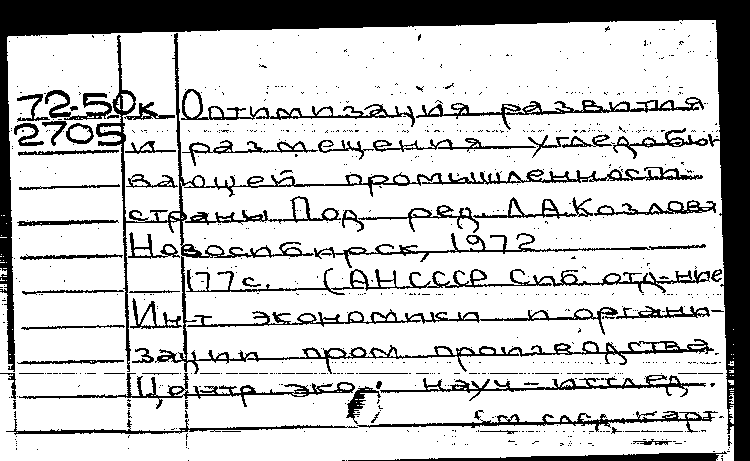 72-50к Оптимизация развития
2705 и размещения угледобы
вающей промышленности
страны Под ред. Л.А.Козлова
Новосибирск, 1972
177с. (АНСССР Сиб. отд-ние
Ин-т экономики и органи-
зации пром производства
Центр эко. науч-исслед.
См след карт